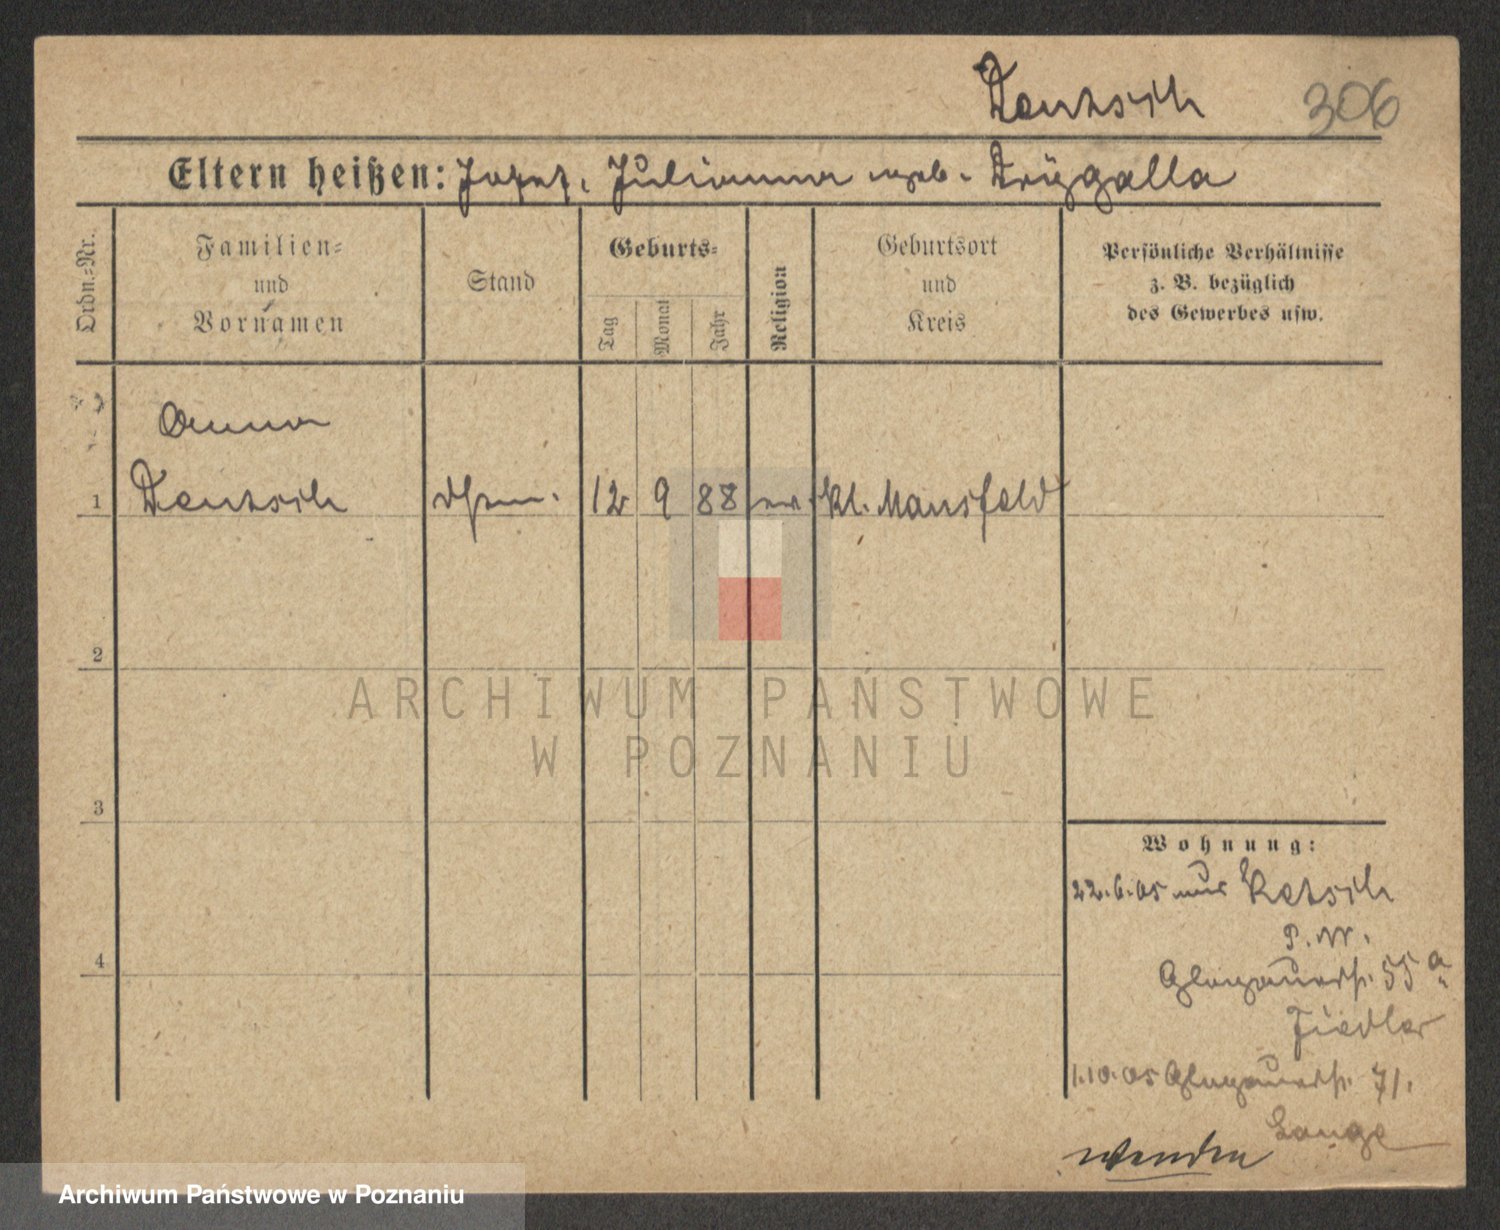 Deutsch 306
Eltern heißen: Josef, Julianna geb. Drügalla
Ordn.=Nr.
Familien=
und
Vornamen
Stand
Geburts=
Tag
Monat
Jahr
Religion
Geburtsort
und
Kreis
Persönliche Verhältnisse
z. B. bezüglich
des Gewerbes usw.
Anna
1 Deutsch 12 9 88 kl. Mansfeld
2
ARCHIWUM PAŃSTWOWE
W POZNANIU
3
Wohnung:
22.6.05 aus
4
Glogauerstr. 55a
Fiedler
1.10.05 Glogauerstr. 71.
Lange
wenden
Archiwum Państwowe w Poznaniu